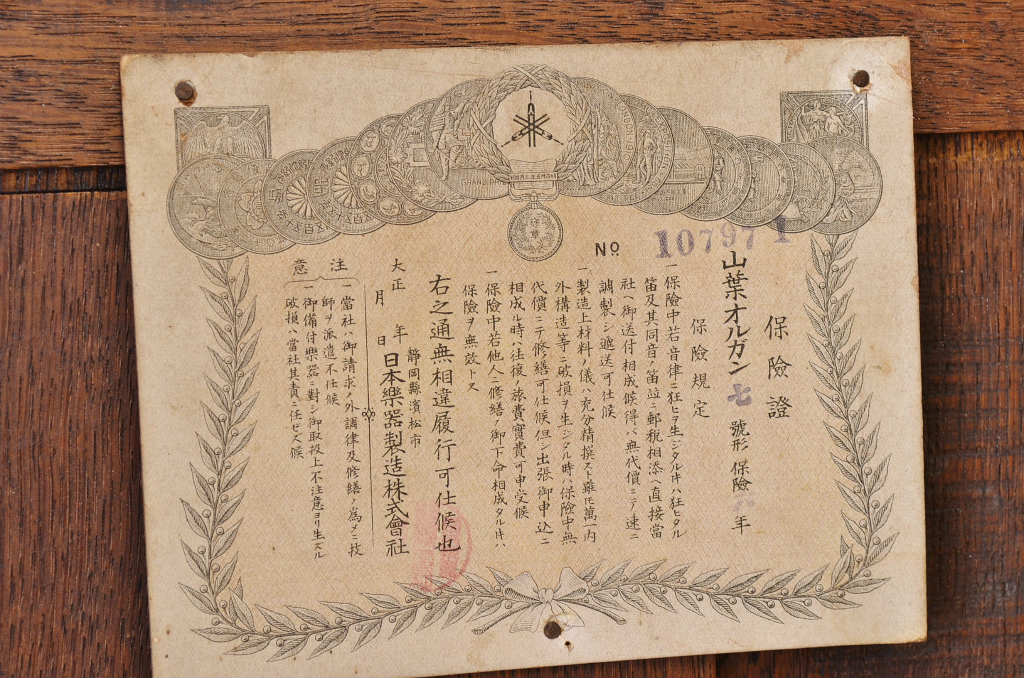 No 107971
保險證
山葉オルガン七號形保險 年
保險規定
一保險中若音律ニ狂ヒヲ生ジタル時ハ狂ヒタル
笛及其同音ノ笛并ニ郵税相添ヘ直接當
社ヘ御送付相成候得バ無代價ニテ速ニ
調製シ遞送可仕候
一製造上材料ノ儀ハ充分精撰スト雖モ萬一内
外構造等ニ破損ヲ生シタル時ハ保險中無
代價ニテ修繕可仕候但シ出張御申込ニ
相成ル時ハ往復ノ旅費實費可申受候
一保險中若他人ニ修繕ノ御下命相成タル時ハ
保險ヲ無效トス
右之通無相違履行可仕候也
大正 年 月 日
靜岡縣濱松市
日本樂器製造株式會社
注意
一當社ハ御請求ノ外調律及修繕ノ爲メニ技
師ヲ派遣不仕候
一御備付樂器ニ對シ御取扱上不注意ヨリ生ズル
破損ハ當社其責ニ任ゼズ候